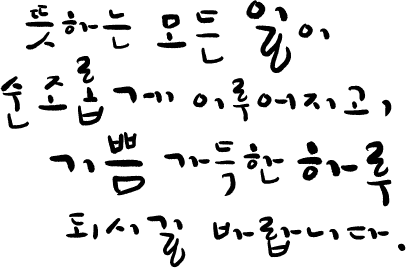 뜻하는 모든 일이
순조롭게 이루어지고,
기쁨 가득한 하루
되시길 바랍니다.